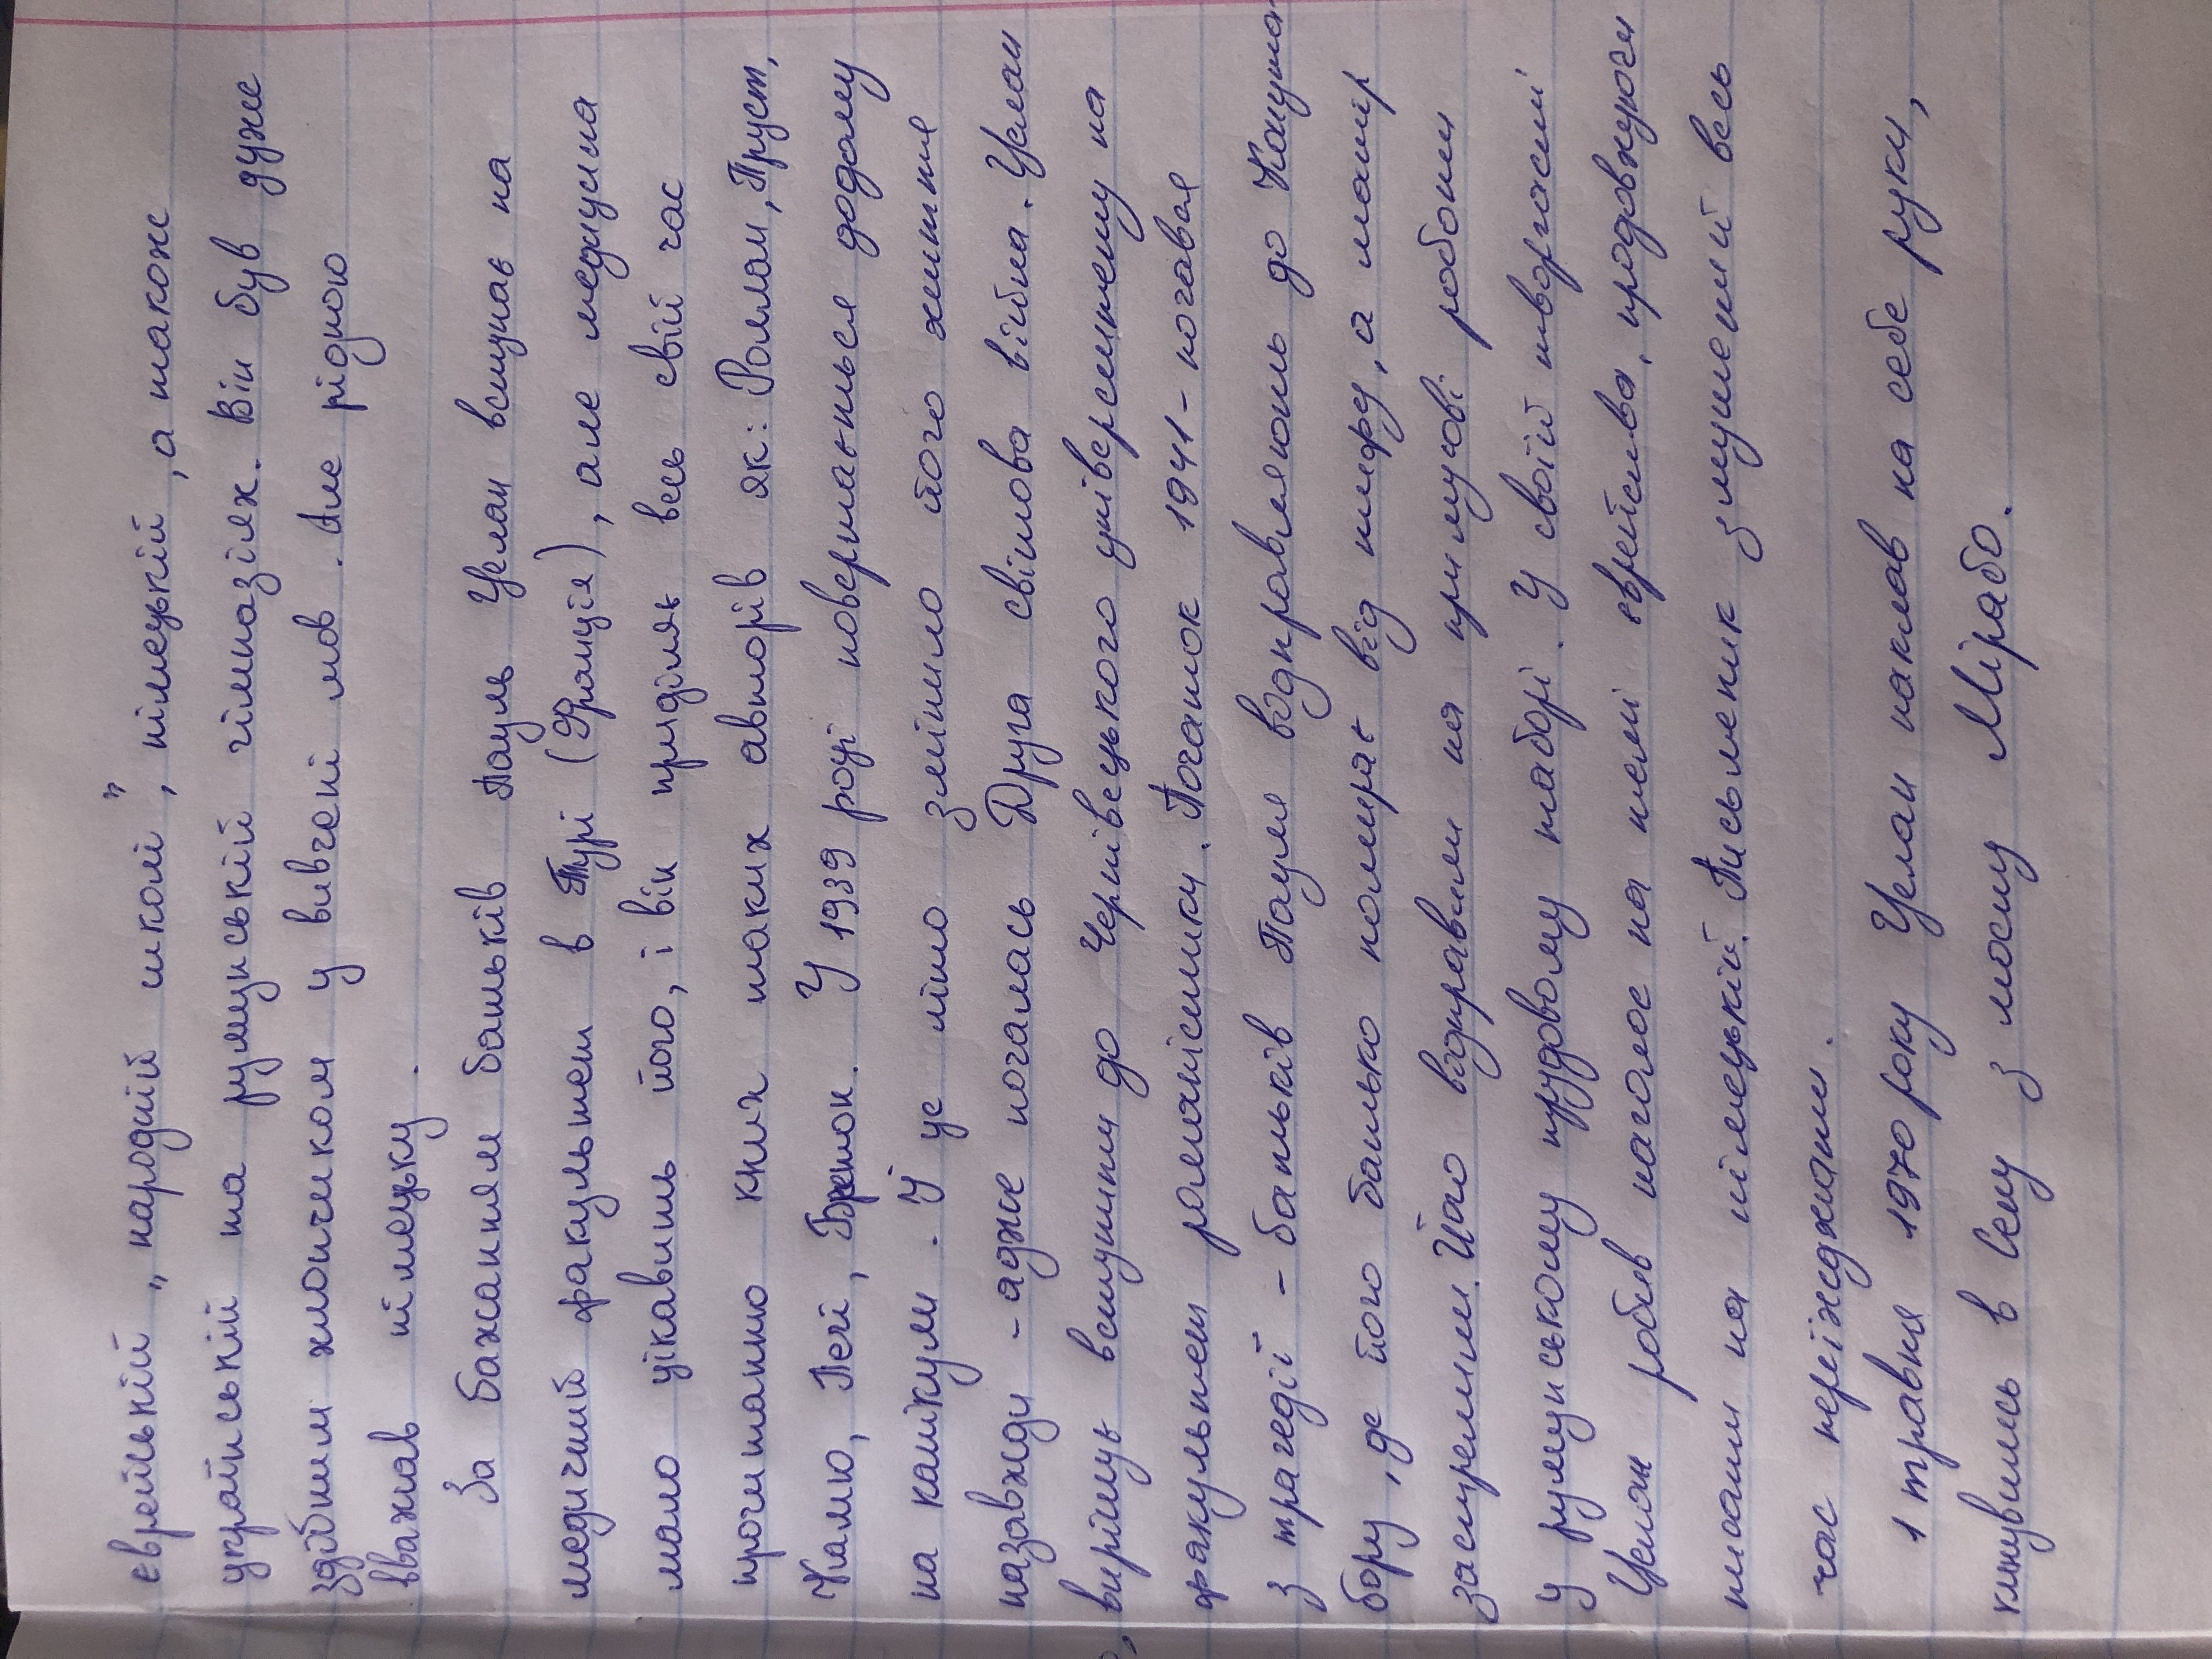 єврейській „народній школі”, німецькій, а також
українській та румунській гімназіях. Він був дуже
здібним хлопчиком у вивчені мов. Але рідною
вважав німецьку.
За бажаням батьків Пауль Целан вступає на
медичний факультет в Турі (Франція), але медицина
мало цікавить його, і він приділяє весь свій час
прочитанню книг таких авторів як: Ролан, Пруст,
Камю, Пегі, Бретон. У 1939 році повертається додому
на канікули. Й це літо змінило його життя
назавжди - адже почалась Друга світова війна. Целан
вирішує вступити до Чернівецького університету на
факультет романістики. Початок 1941 - почався
з трагедії - батьків Пауля відправляють до Концта-
бору, де його батько помирає від тифу, а матір
застрелили. Його відправили на примусові роботи
у румунському трудовому таборі. У своїй творчості
Целан робив наголос на темі єврейства, продовжуючи
писати на німецькій. Письменник змушений весь
час переїжджати.
1 травня 1970 року Целан наклав на себе руки,
кинувшись в Сену з мосту Мірабо.